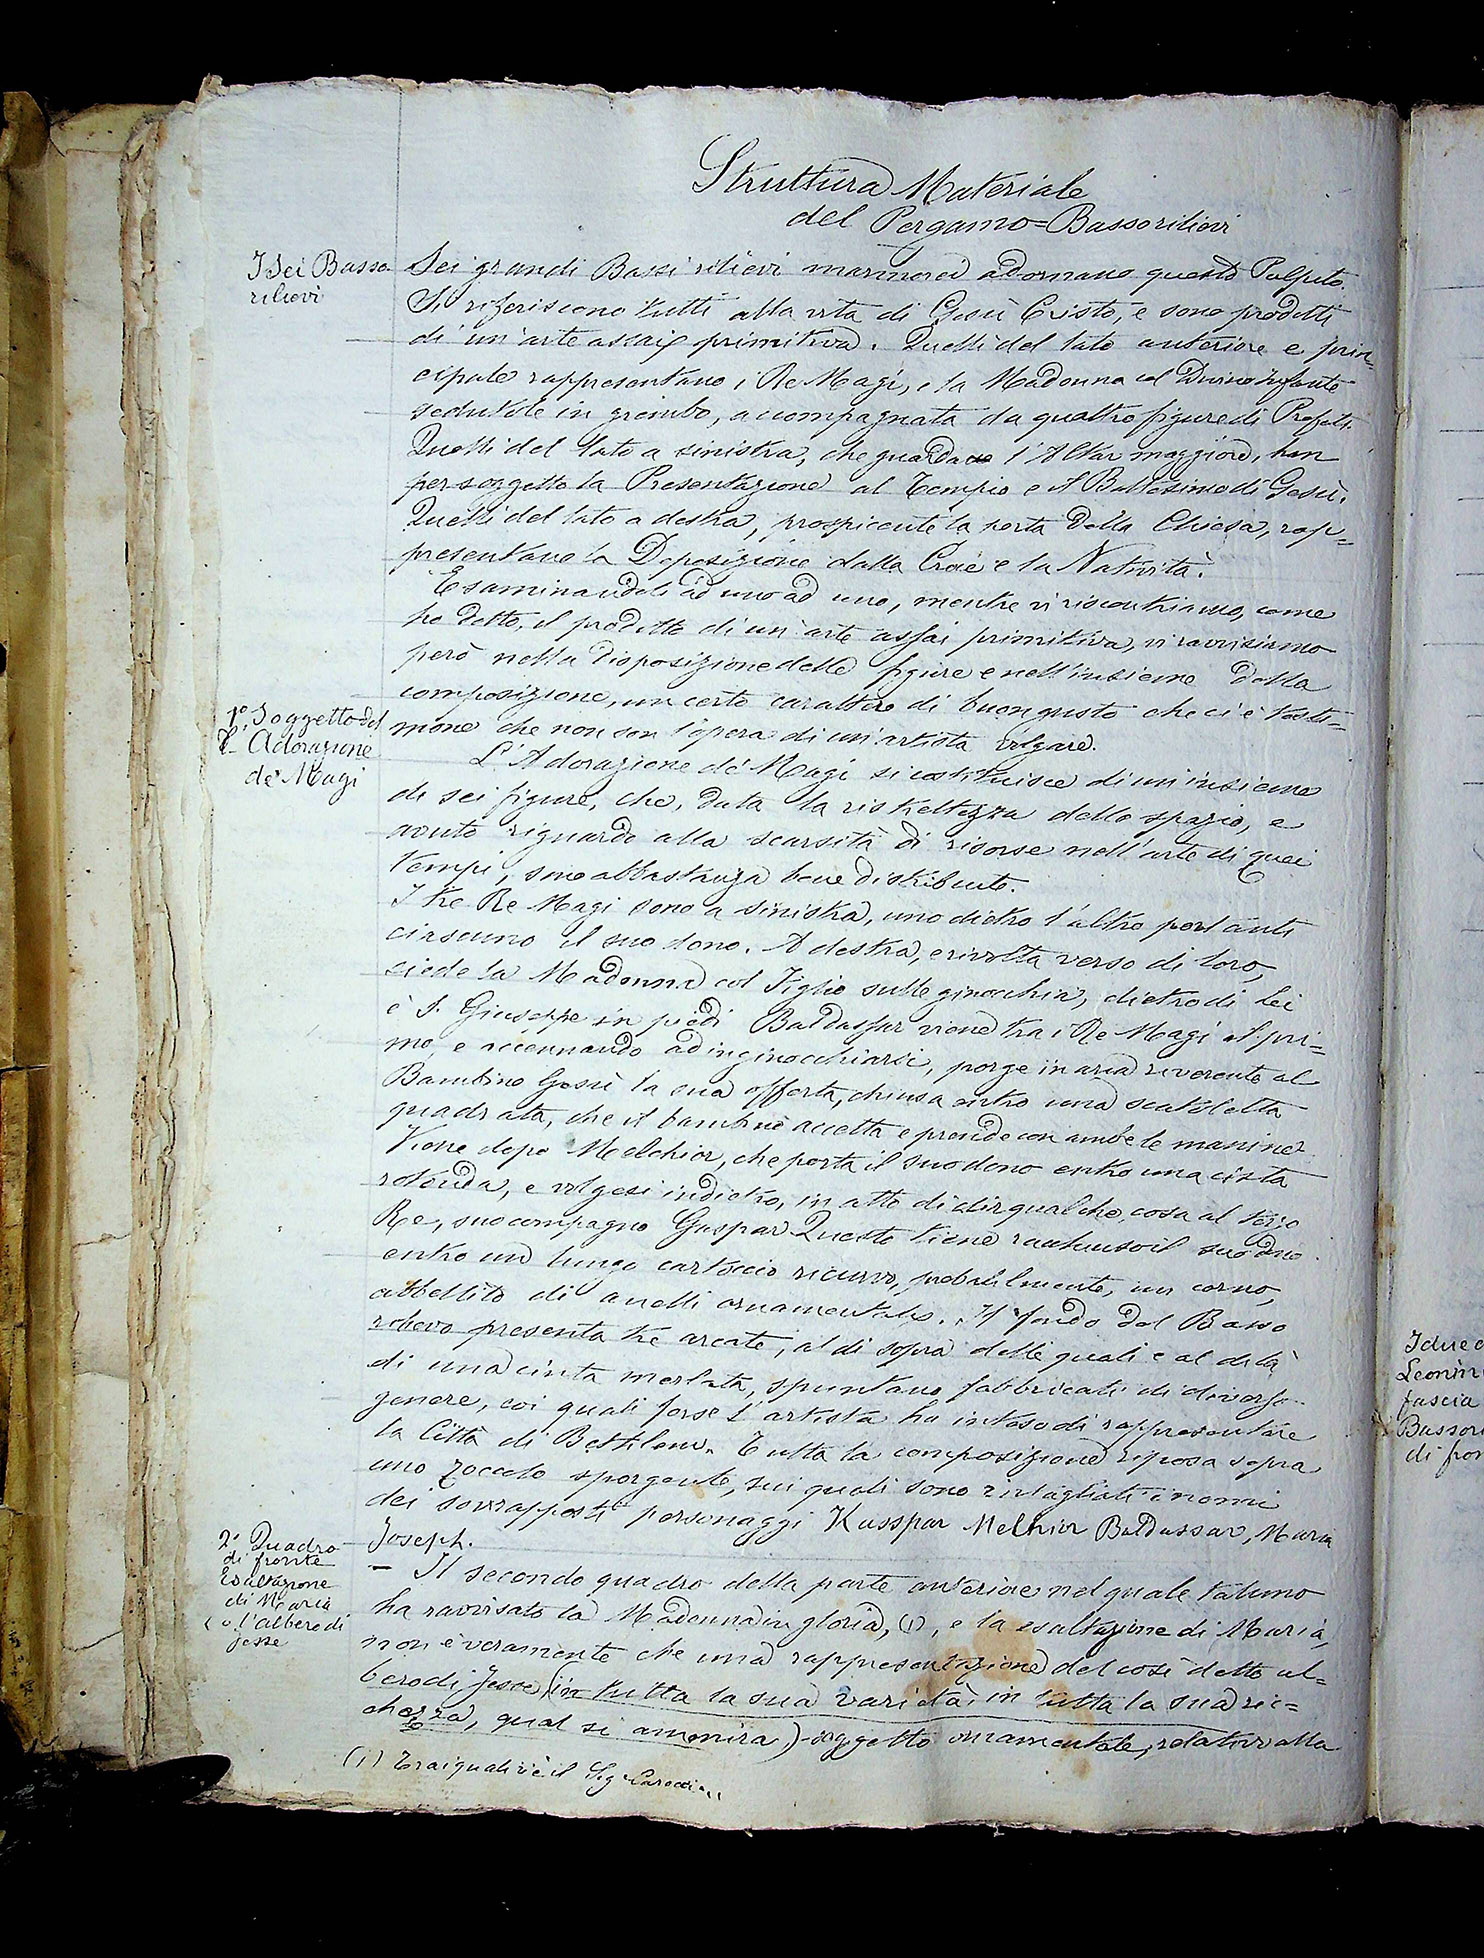 Struttura Materiale
del Pergamo = Bassorilievi
I sei Basso
rilievi
Sei grandi Bassi rilievi marmorei adornano questo Pulpito.
Si riferiscono tutti alla vita di Gesù Cristo, e sono prodotti
di un'arte assai primitiva. Quelli del lato anteriore e prin=
cipale rappresentano i Re Magi, e la Madonna col Divino Infante
sedutole in grembo, accompagnata da quattro figure di Profeti.
Quelli del lato a sinistra, che guarda l'Altar maggiore, han
per soggetto la Presentazione al Tempio e il Battesimo di Gesù.
Quelli del lato a destra, prospiciente la porta della Chiesa, rap=
presentano la Deposizione dalla Croce e la Natività.
Esaminandoli ad uno ad uno, mentre vi riscontriamo, come
ho detto, il prodotto di un'arte assai primitiva, vi ravvisiamo
però nella disposizione delle figure e nell'insieme della
composizione, un certo carattere di buon gusto che ci è testi=
mone che non son l'opera di un'artista volgare.
1º Soggetto del
L'Adorazione
de' Magi
L'Adorazione de' Magi si costituisce di un'insieme
di sei figure, che, data la ristrettezza dello spazio, e
avuto riguardo alla scarsità di risorse nell'arte di quei
tempi, sono abbastanza bene distribuite.
I tre Re Magi sono a sinistra, uno dietro l'altro portanti
ciascuno il suo dono. A destra, e rivolta verso di loro,
siede la Madonna col Figlio sulle ginocchia, dietro di lei
è S. Giuseppe in piedi Baldassar viene tra i Re Magi il pri=
mo, e accennando ad inginocchiarsi, porge in aria riverente al
Bambino Gesù la sua offerta, chiusa entro una scatoletta
quadrata, che il bambino accetta e prende con ambe le manine.
Viene dopo Melchior, che porta il suo dono entro una cista
rotonda, e volgesi indietro, in atto di dir qualche cosa al terzo
Re, suo compagno Gaspar. Questo tiene racchiuso il suo dono
entro un lungo cartoccio ricurvo, probabilmente, un corno,
abbellito di anelli ornamentali. Il fondo del Basso
rilievo presenta tre arcate, al di sopra delle quali e al di là
di una cinta merlata, spuntano fabbricati di diverso
genere, coi quali forse l'artista ha inteso di rappresentare
la Città di Bethlem. Tutta la composizione riposa sopra
uno zoccolo sporgente, sui quali sono rintagliati i nomi
dei sovrapposti personaggi Kasspar Melchior Baldassar, Maria
Joseph.
2º Quadro
di fronte
Esaltazione
di Maria
(o l'albero di
Jesse
– Il secondo quadro della parte anteriore nel quale taluno
ha ravvisato la Madonna in gloria, (1), e la esaltazione di Maria,
non è veramente che una rappresentazione del così detto al=
bero di Jesse (in tutta la sua varietà, in tutta la sua ric=
chezza, qual si ammira) soggetto ornamentale, relativo alla
(1) Tra i quali vi è il Sig. Carocci...
I due
Leonin
fascia
Bassori
di fron